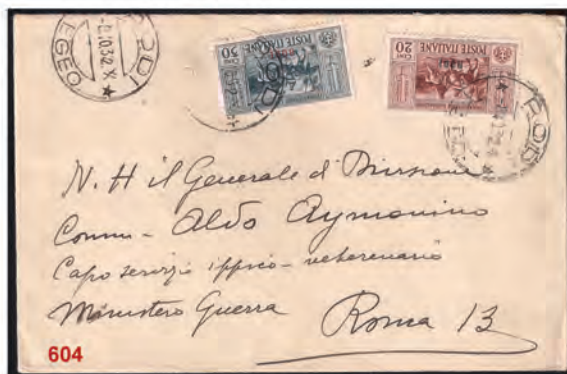 RODI
8.10.32.X
EGEO
POSTE ITALIANE
CENT 30
RODI
POSTE ITALIANE
CENT 20
RODI
N. H il Generale d' Divisione
Comm - Aldo Aymonino
Capo servizio ippico - veterinario
Ministero Guerra
Roma 13
604